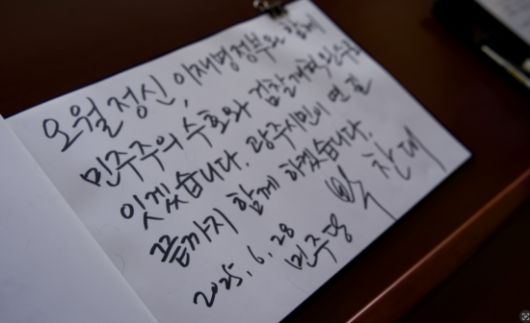 오월 정신, 이재명 정부와 함께
민주주의 수호와 검찰개혁 완수로
잇겠습니다. 광주시민이 연 길
끝까지 함께 하겠습니다.
박찬대
2025. 6. 28 민주당